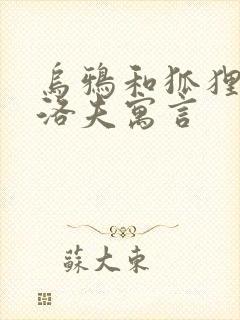 烏鴉和狐狸
洛夫寓言
蘇大東